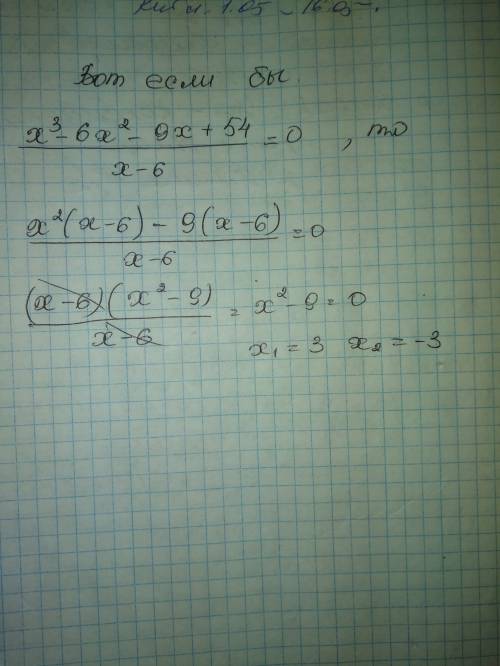 1.05 - 16.05
Вот если бы
x³ - 6x² - 9x + 54 / x - 6 = 0 , то
x²(x - 6) - 9(x - 6) / x - 6 = 0
(x - 6)(x² - 9) / x - 6 = x² - 9 = 0
x₁ = 3 x₂ = -3